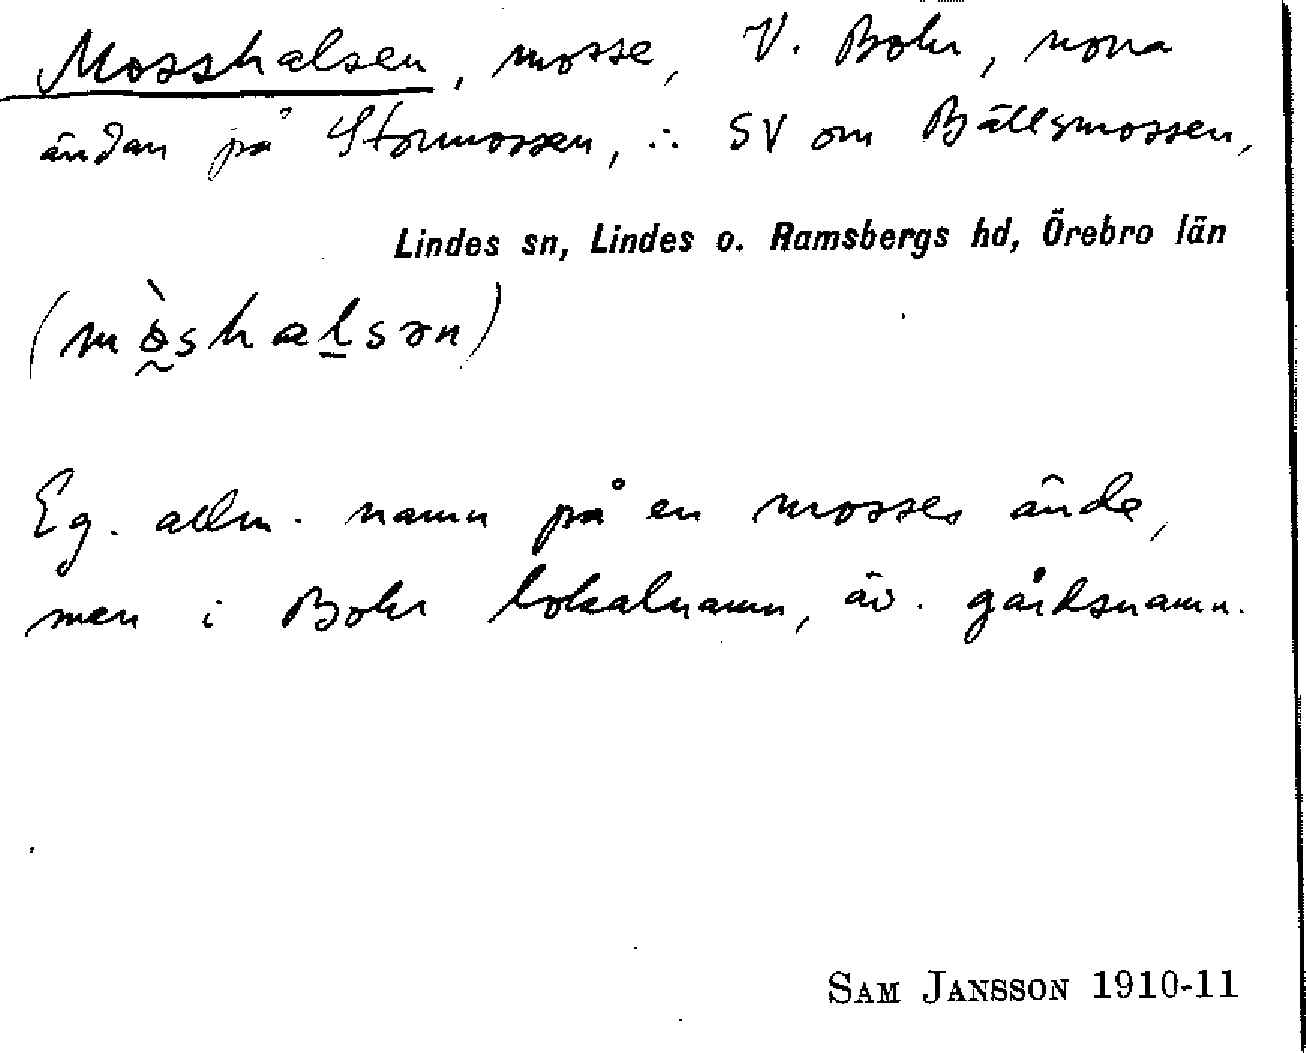 Mosshalsen, mosse, V. Bohr, norra
ändan på Stormossen, ∴ SV om Bällsmossen,
Lindes sn, Lindes o. Ramsbergs hd, Örebro län
Eg. allm. namn på en mosses ände,
men i Bohr lokalnamn, äv. gårdsnamn.
SAM JANSSON 1910-11